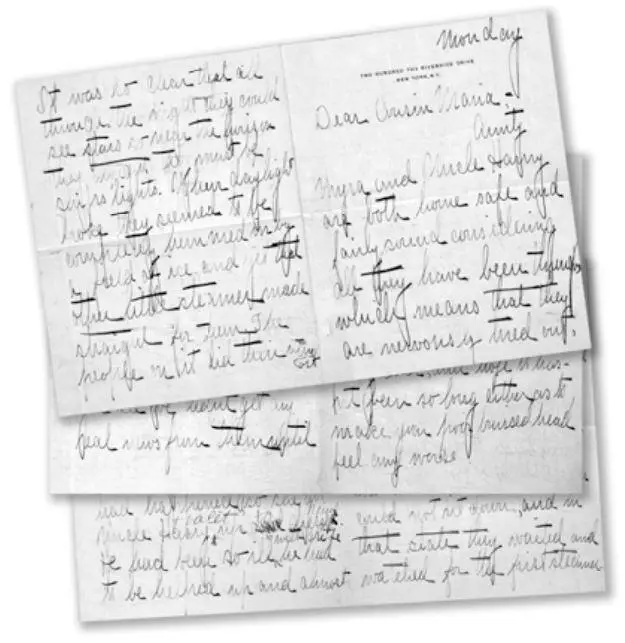 Monday
TWO HUNDRED TEN RIVERSIDE DRIVE
NEW YORK, N.Y.
Dear Cousin Maria:
Aunty
Myra and Uncle Harry
are both home safe and
fairly sound considering
all they have been through
which means that they
are nervously tired out.
It was so clear that all
through the night they could
see stars so near the horizon
they
ship's lights. When daylight
broke they seemed to be
completely hemmed in by
a field of ice, and yet that
other little steamer made
straight for them. The
people on it did their
get my
real news from them until
and hope it has-
n't been so long either as to
make your poor bruised head
feel any worse
had that
Uncle Harry
he had been so ill, he had
to be helped up and almost
could not sit down, and in
that state they waited and
watched for the first steamer